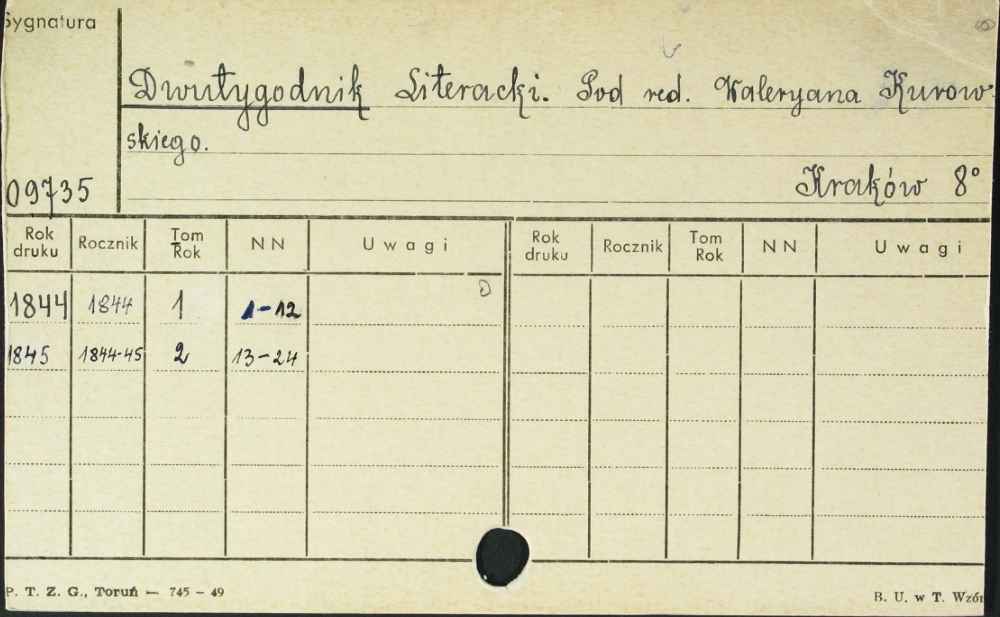 Sygnatura
Dwutygodnik Literacki. Pod red. Waleryana Kurow-
skiego.
09735
Kraków 8°
Rok druku Rocznik Tom Rok NN Uwagi Rok druku Rocznik Tom Rok NN Uwagi
1844 1844 1 1-12
1845 1844-45 2 13-24
P. T. Z. G., Toruń — 745 - 49
B. U. w T. Wzór